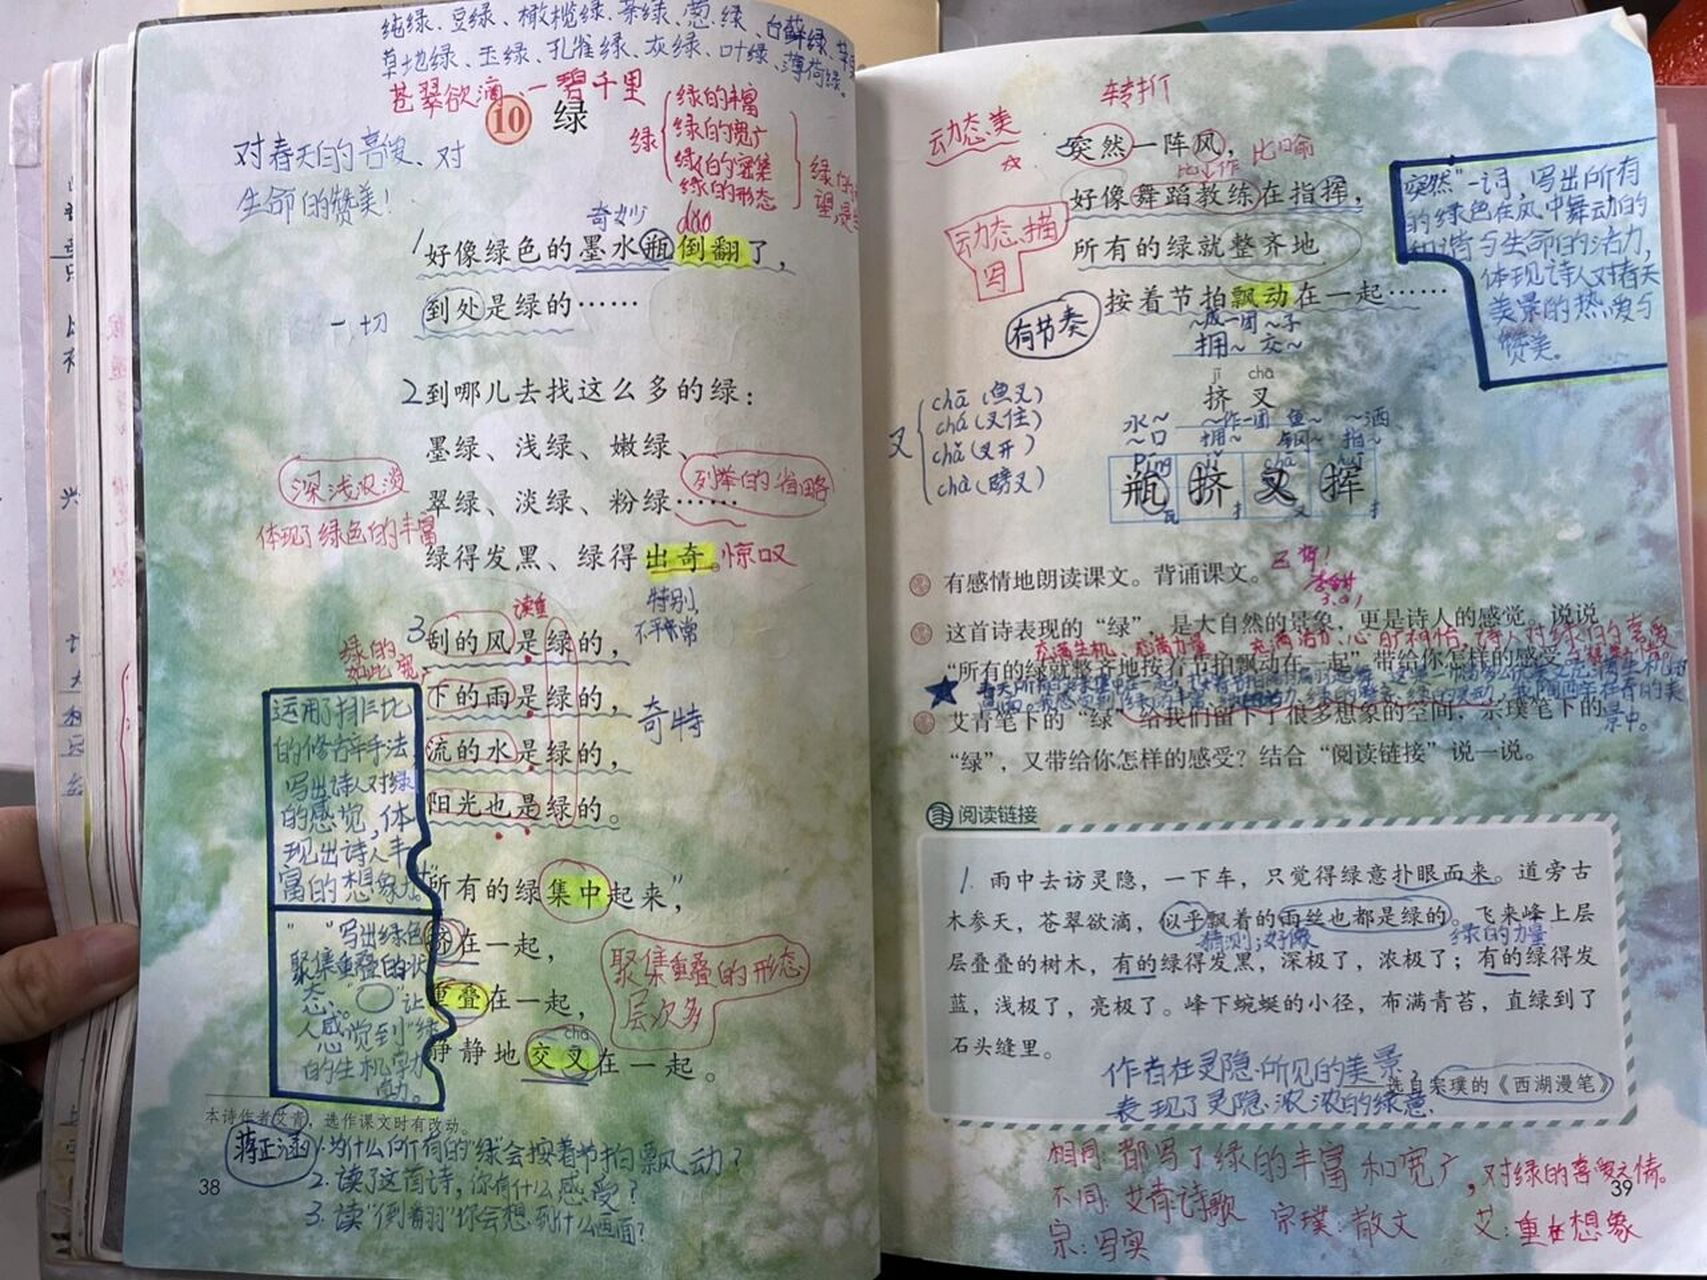 纯绿、豆绿、橄榄绿、茶绿、葱绿、白藓绿、
草地绿、玉绿、孔雀绿、灰绿、叶绿、薄荷绿。
苍翠欲滴、一碧千里
10 绿
绿
绿的丰富
绿的宽广
绿的密集
绿的形态
对春天的喜爱、对
生命的赞美!
奇妙
dào
1好像绿色的墨水瓶倒翻了，
到处是绿的……
一切
2到哪儿去找这么多的绿：
墨绿、浅绿、嫩绿、
翠绿、淡绿、粉绿……
深浅浓淡
列举的省略
体现了绿色的丰富
绿得发黑、绿得出奇。
惊叹
特别,
不平常
读重
3刮的风是绿的，
下的雨是绿的，
流的水是绿的，
阳光也是绿的。
绿的
如此宽
奇特
运用了排比
的修辞手法,
写出诗人对绿
的感觉,体
现出诗人丰
富的想象力。
所有的绿集中起来，
挤在一起，
重叠在一起，
静静地交叉在一起。
chā
聚集重叠的形态
层次多
" "写出绿色
聚集重叠的状
态。"○"让
人感觉到"绿
的生机
本诗作者艾青，选作课文时有改动。
蒋正涵
1.为什么所有的"绿"会按着节拍飘动?
2.读了这首诗,你有什么感受?
3.读"倒翻"你会想到什么画面?
38
转折
动态美
突然一阵风，
比喻
比作
好像舞蹈教练在指挥，
动态描
写
所有的绿就整齐地
按着节拍飘动在一起……
有节奏
突然"一词,写出所有
的绿色在风中舞动的
和谐与生命的活力,
体现诗人对春天
美景的热爱与
赞美。
~成一团 ~子
拥~ 交~
jǐ chā
挤 叉
叉
chā(鱼叉)
chá(叉住)
chǎ(叉开)
chà(劈叉)
水~ ~作一团 鱼~ ~洒
~口 拥~ 钢~ 指~
píng jǐ chā huī
瓶 挤 叉 挥
瓦 扌 又 扌
有感情地朗读课文。背诵课文。
已背!
这首诗表现的“绿”，是大自然的景象，更是诗人的感觉。说说
充满生机、充满力量
“所有的绿就整齐地按着节拍飘动在一起”带给你怎样的感受。
艾青笔下的“绿”给我们留下了很多想象的空间，宗璞笔下的
“绿”，又带给你怎样的感受？结合“阅读链接”说一说。
阅读链接
1. 雨中去访灵隐，一下车，只觉得绿意扑眼而来。道旁古
木参天，苍翠欲滴，似乎飘着的雨丝也都是绿的。飞来峰上层
猜测;好像
绿的力量
层叠叠的树木，有的绿得发黑，深极了，浓极了；有的绿得发
蓝，浅极了，亮极了。峰下蜿蜒的小径，布满青苔，直绿到了
石头缝里。
作者在灵隐所见的美景
——选自宗璞的《西湖漫笔》
表现了灵隐浓浓的绿意.
相同:都写了绿的丰富和宽广,对绿的喜爱之情。
不同:艾青:诗歌 宗璞:散文 艾:重在想象
宗:写实
39